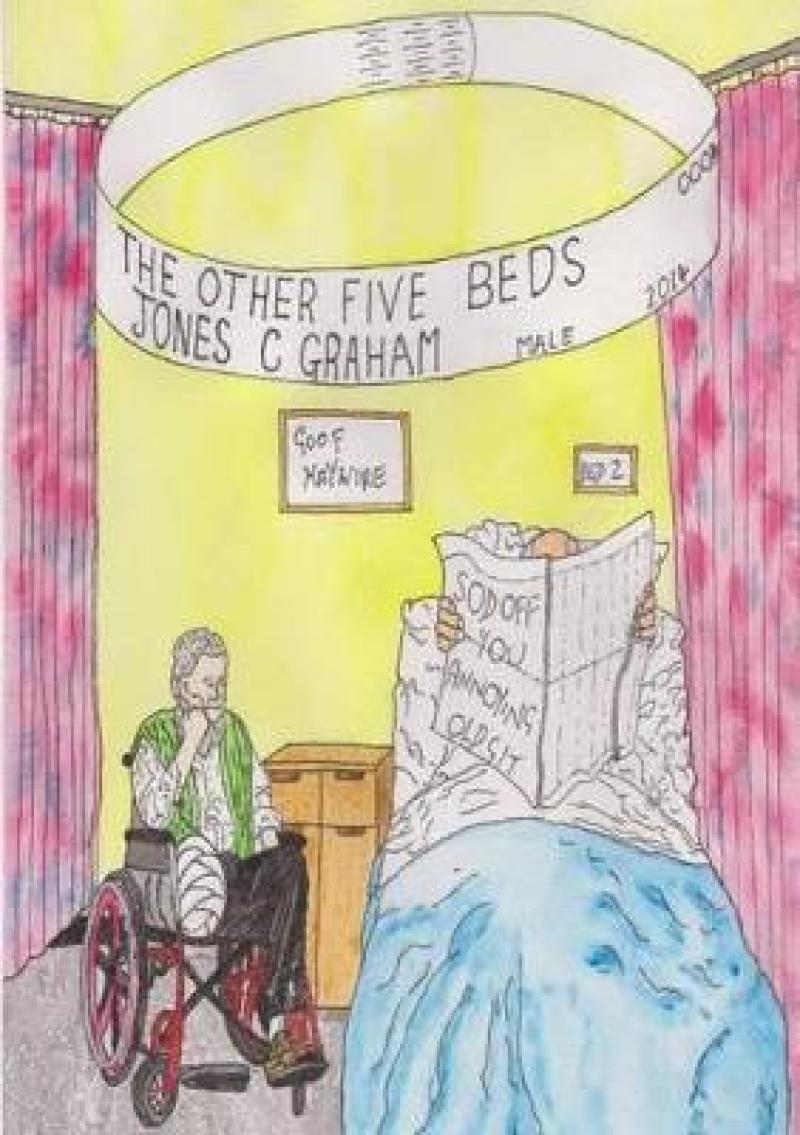 THE OTHER FIVE BEDS
JONES C GRAHAM MALE 2014
GOOF
HAYWIRE
BED 2
SOD OFF
YOU
ANNOYING
OLD SIT